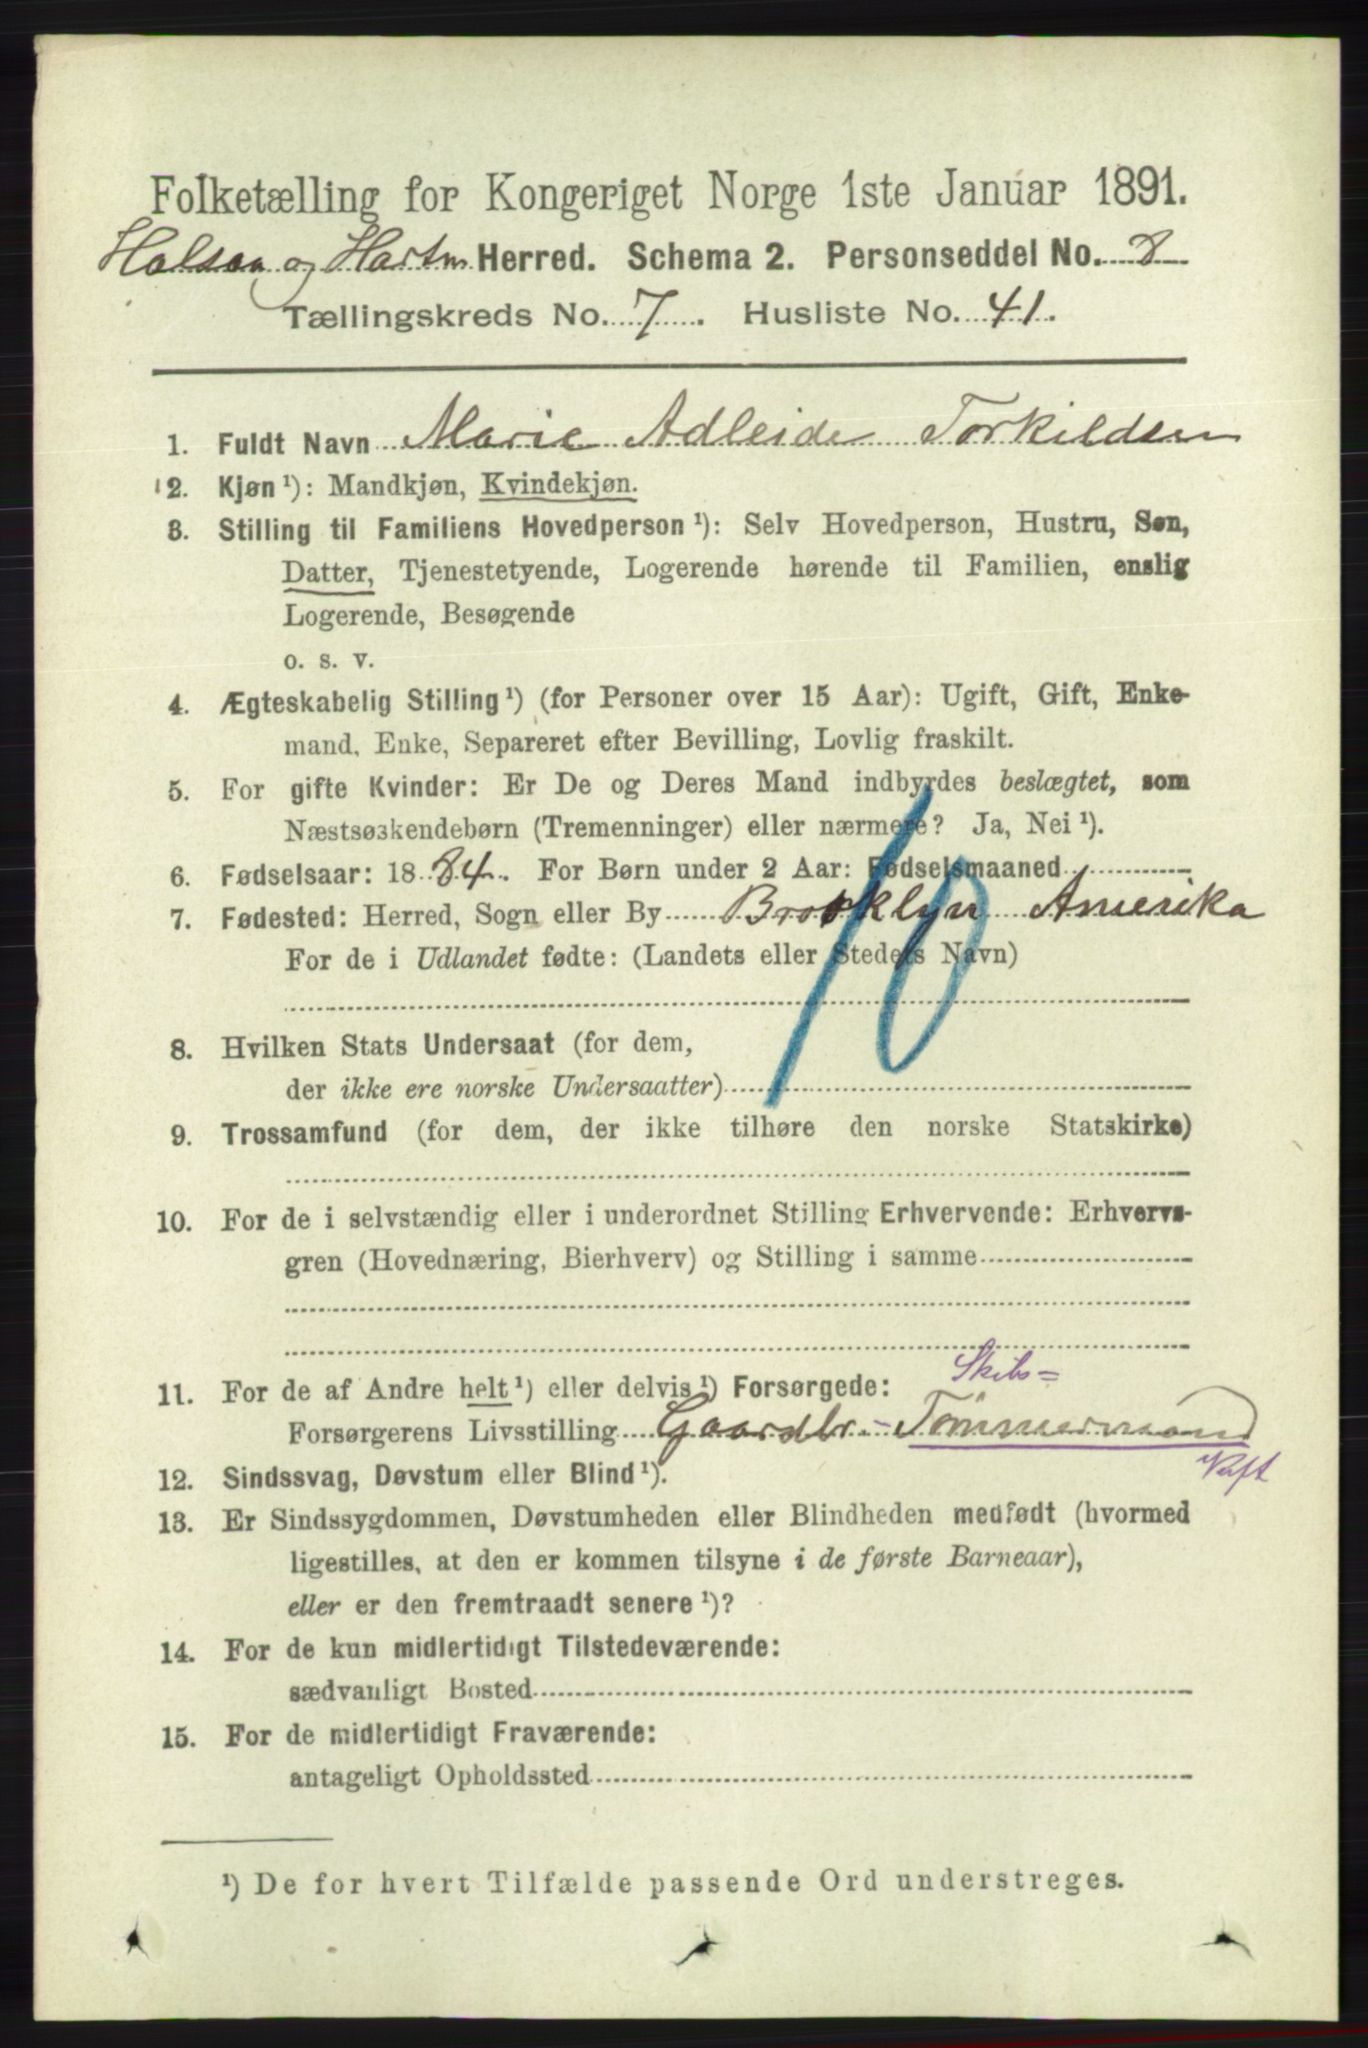 Folketælling for Kongeriget Norge 1ste Januar 1891.
Halsaa og Hartm Herred. Schema 2. Personseddel No. 8
Tællingskreds No. 7. Husliste No. 41.
1. Fuldt Navn Marie Adleide Torkildsen
2. Kjøn ¹): Mandkjøn, Kvindekjøn.
3. Stilling til Familiens Hovedperson ¹): Selv Hovedperson, Hustru, Søn,
Datter, Tjenestetyende, Logerende hørende til Familien, enslig
Logerende, Besøgende
o. s. v.
4. Ægteskabelig Stilling ¹) (for Personer over 15 Aar): Ugift, Gift, Enke-
mand, Enke, Separeret efter Bevilling, Lovlig fraskilt.
5. For gifte Kvinder: Er De og Deres Mand indbyrdes beslægtet, som
Næstsøskendebørn (Tremenninger) eller nærmere? Ja, Nei ¹).
6. Fødselsaar: 1884. For Børn under 2 Aar: Fødselsmaaned
7. Fødested: Herred, Sogn eller By Brooklyn Amerika
For de i Udlandet fødte: (Landets eller Stedets Navn)
10
8. Hvilken Stats Undersaat (for dem,
der ikke ere norske Undersaatter)
9. Trossamfund (for dem, der ikke tilhøre den norske Statskirke)
10. For de i selvstændig eller i underordnet Stilling Erhvervende: Erhvervs-
gren (Hovednæring, Bierhverv) og Stilling i samme
Skibs=
11. For de af Andre helt ¹) eller delvis ¹) Forsørgede:
Forsørgerens Livsstilling Gaardbr.- Tömmermand
12. Sindssvag, Døvstum eller Blind ¹).
13. Er Sindssygdommen, Døvstumheden eller Blindheden medfødt (hvormed
ligestilles, at den er kommen tilsyne i de første Barneaar),
eller er den fremtraadt senere ¹)?
14. For de kun midlertidigt Tilstedeværende:
sædvanligt Bosted
15. For de midlertidigt Fraværende:
antageligt Opholdssted
¹) De for hvert Tilfælde passende Ord understreges.